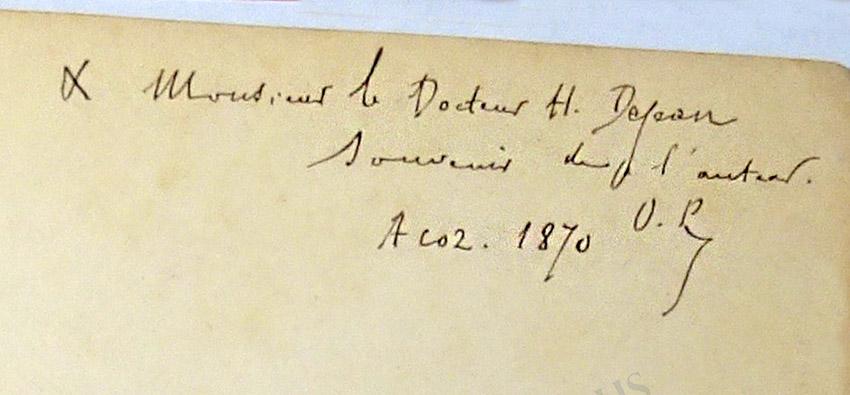 À Monsieur le Docteur H. Dejean
Souvenir de l'auteur.
O. P.
Acoz. 1870
US